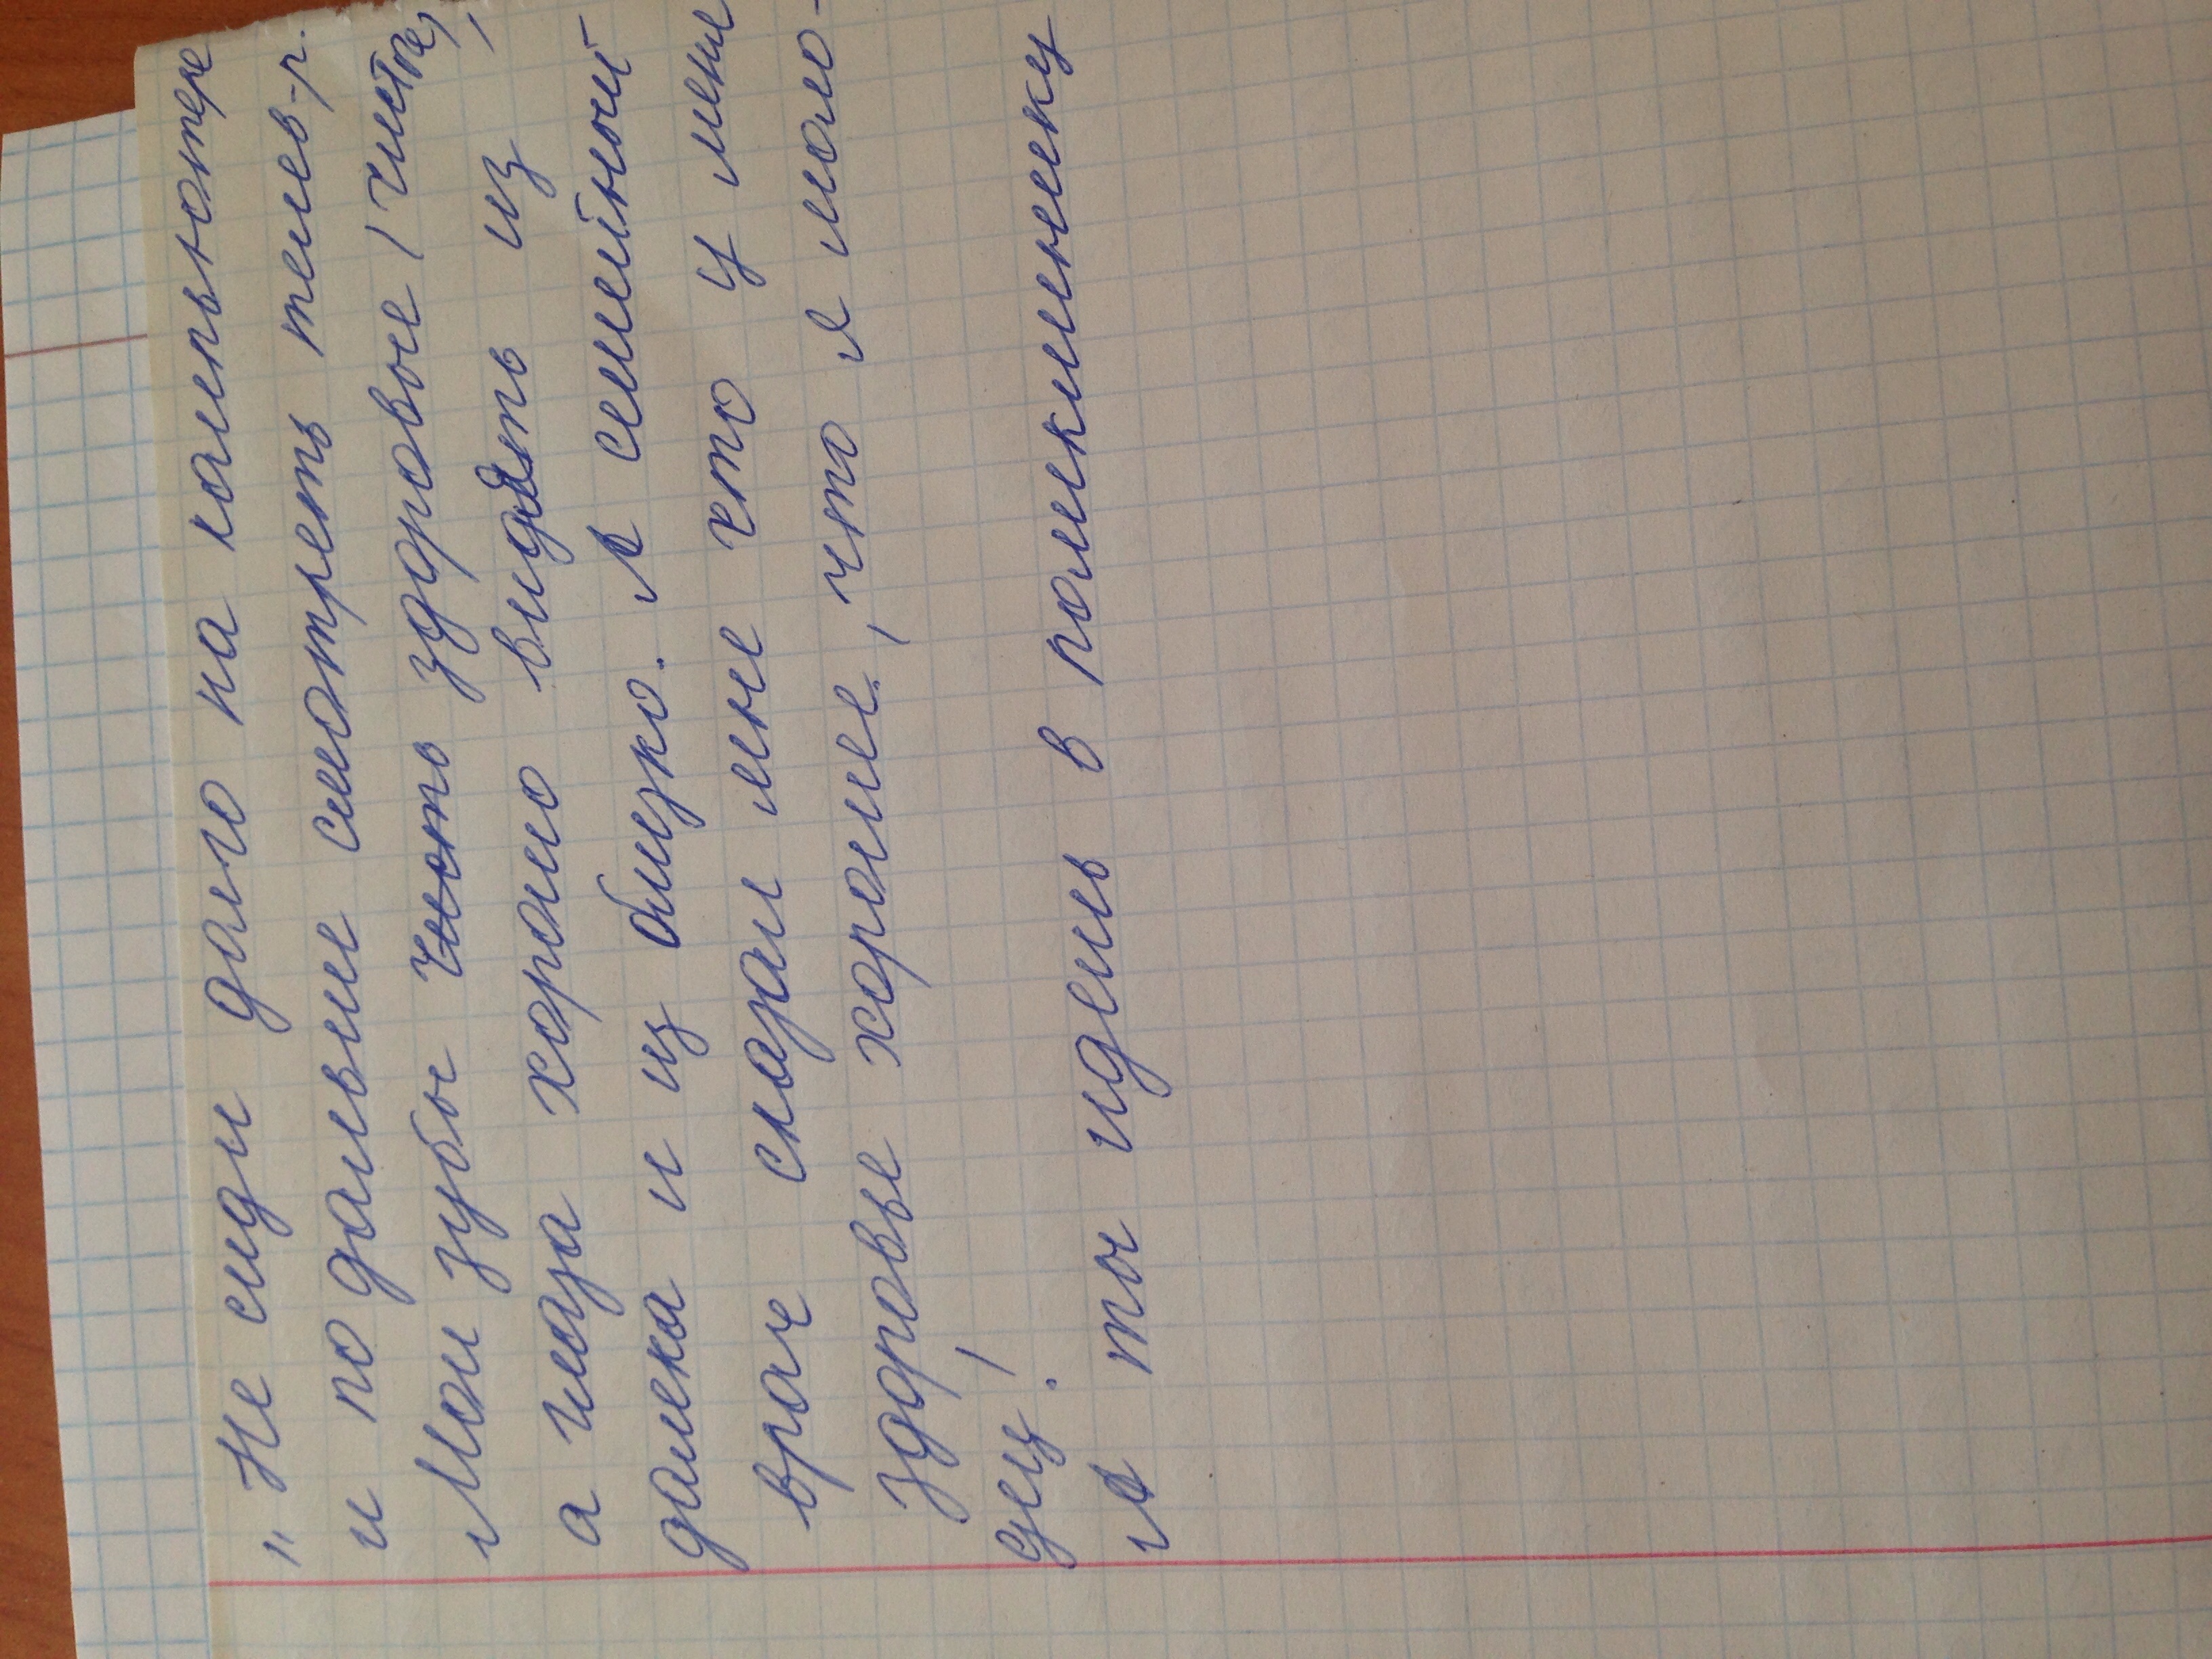 " Не сиди даго на кампьютере
и по дальше смотреть телев-р.
Мои зубы чисто здоровые (чистые),
а глаза хорошо видять из
далека и из близко. А семейный
врач сказал мне хто у меня
здоровье хорошее, что я моло-
дец!
А ты идешь в поликленеку